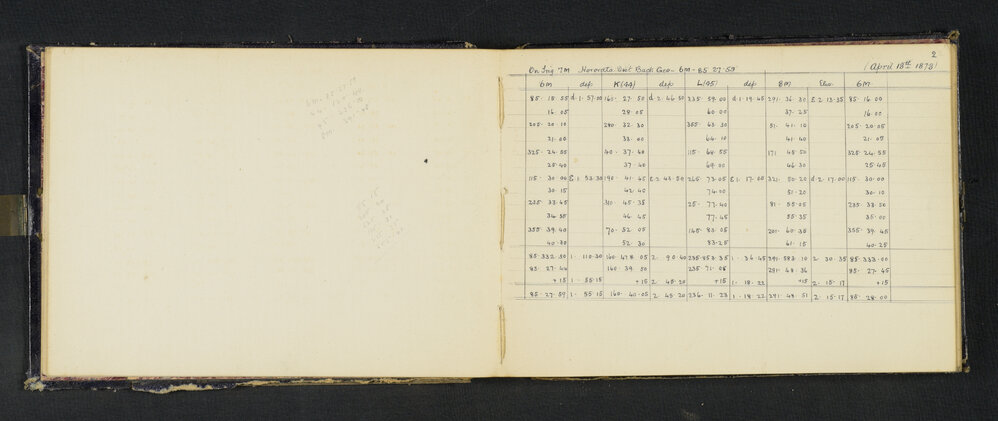 2
On Trig 7M Hororata Dist Back Geo - 6m - 85.27.59 (April 18th 1878)
6m dep K(44) dep L(45) dep 8m Elev 6m
85.15.55 d.1.57.00 160.27.50 d.2.46.50 235.59.00 d.1.19.45 291.36.30 E.2.13.35 85.16.00
16.05 28.05 60.00 37.25 16.00
205.20.10 280.32.30 355.63.30 51.41.10 205.20.05
21.00 33.00 64.10 41.40 21.05
325.24.55 40.37.40 115.68.55 171 45.50 325.24.55
25.40 37.40 69.00 46.30 25.45
115.30.00 E.1.53.30 190.41.45 E.2.43.50 265.73.05 E.1.17.00 321.50.20 d.2.17.00 115.30.00
30.15 42.40 74.00 51.20 30.10
235.33.45 310.45.35 25.77.40 81.55.05 235.33.50
34.35 46.45 77.45 55.35 35.00
355.39.40 70.52.05 145.83.05 201.60.35 355.39.45
40.30 52.30 83.25 61.15 40.25
85.332.30 1.110.30 160.478.05 2.90.40 235.853.35 1.36.45 291.583.10 2.30.35 85.333.00
85.27.44 160.39.50 235.71.08 291.48.36 85.27.45
+15 1.55.15 +15 2.45.20 +15 1.18.22 +15 2.15.17 +15
85.27.59 1.55.15 160.40.05 2.45.20 236.11.23 1.18.22 291.48.51 2.15.17 85.28.00